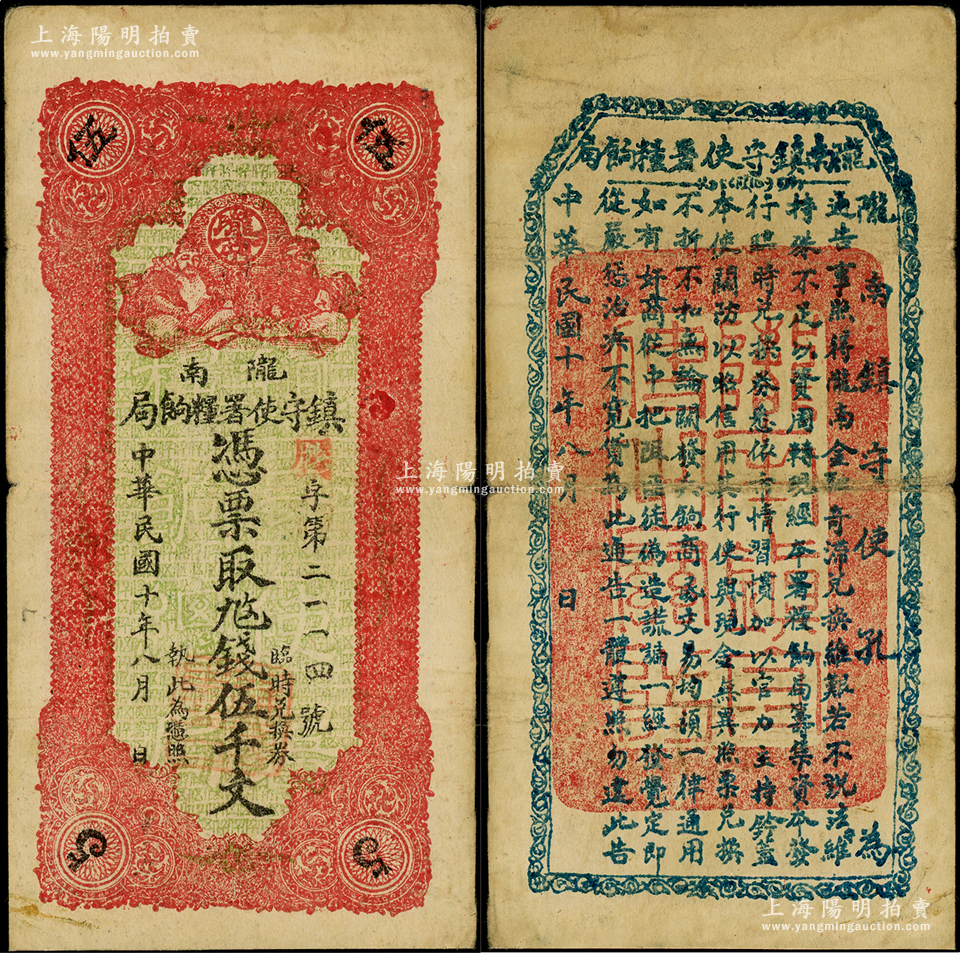 上海陽明拍賣
www.yangmingauction.com
伍
隴南
鎮守使署糧餉局
字第二一一四號
憑票取兌錢伍千文
臨時兌換券
執此為憑照
中華民國十年八月 日
5
5
上海陽明拍賣
www.yangmingauction.com
隴南鎮守使署糧餉局
隴南鎮守使孔為
通告事照得隴南金融奇滯兌換維艱若不設法維
持殊不足以資周轉現經本署糧餉局籌集資本發
行臨時兌換券悉依市情習慣加以官力主持鈐蓋
本使關防以昭信用其行使與現金無異照票兌換
不折不扣無論關發兵餉商家交易均須一律通用
如有奸商從中把匪徒偽造謊騙一經發覺定即
從嚴懲治決不寬貸為此通告一體遵照勿違此告
中華民國十年八月 日
上海陽明拍賣
www.yangmingauction.com